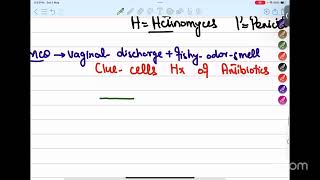 H = Hctinomyces P= Penici
MCQ → Vaginal- discharge + fishy-odor-smell
Clue-cells Hx of Antibiotics
om